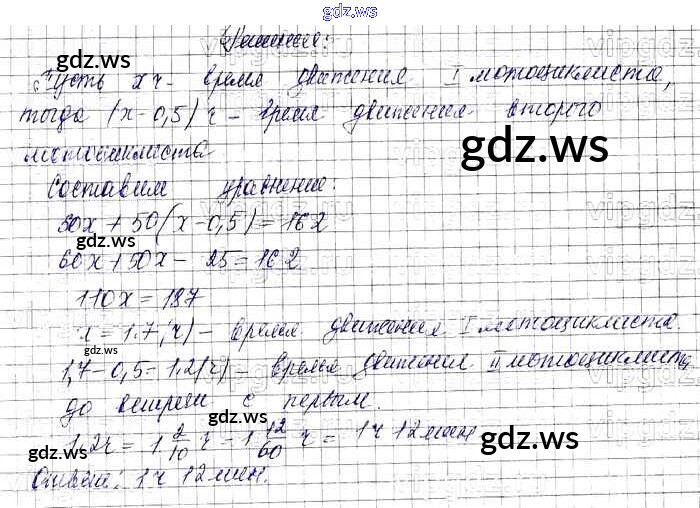 gdz.ws
Решение:
Пусть x ч - время движения I мотоциклиста,
тогда (x-0,5) ч - время движения второго
мотоциклиста
Составим уравнение:
60x+50(x-0,5)=162
60x+50x-25=162
110x=187
x=1.7(ч)- время движения I мотоциклиста.
1,7-0,5=1.2(ч)- время движения II мотоциклиста
до встречи с первым.
1.2ч = 1 2/10 ч = 1 12/60 ч = 1ч 12мин
Ответ: 1ч 12мин.
gdz.ws
gdz.ws
gdz.ws
gdz.ws
gdz.ws
gdz.ws
gdz.ws
gdz.ws